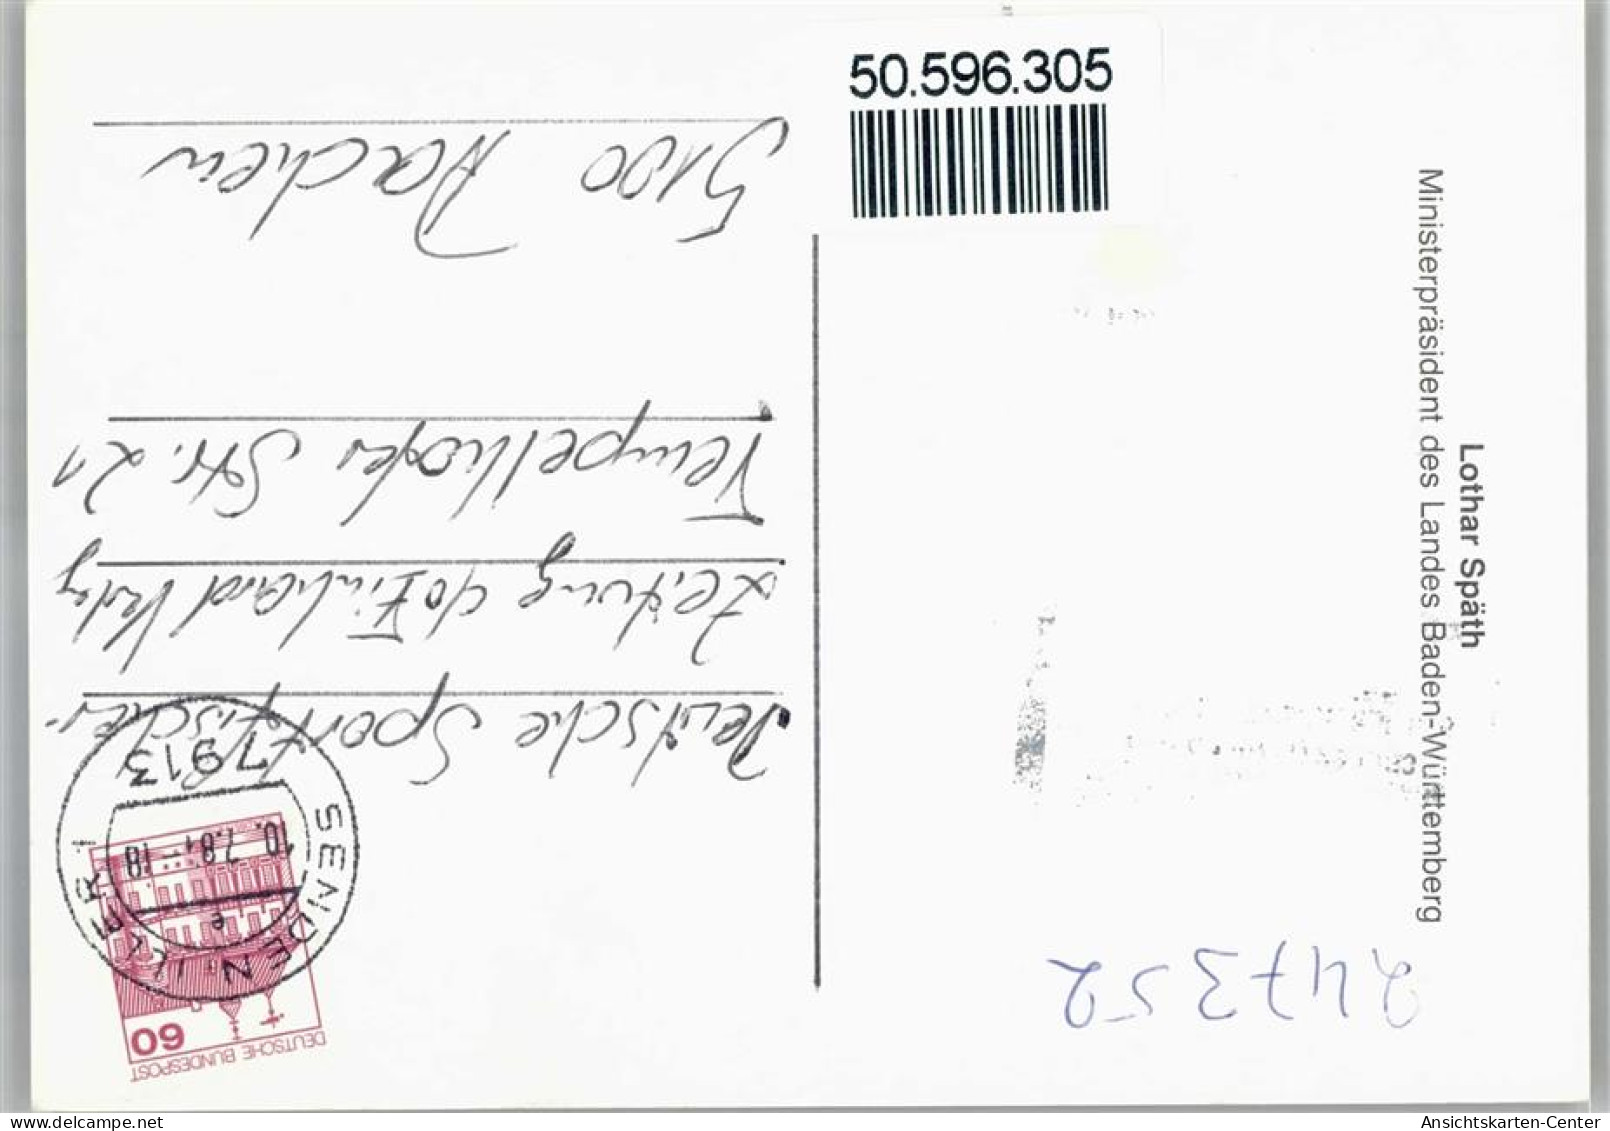 50.596.305
Lothar Späth
Ministerpräsident des Landes Baden-Württemberg
247352
DEUTSCHE BUNDESPOST
60
7913
SENDEN, ILLER 1
10.7.81-18
e
Deutsche Sportfischer-
Zeitung c/o Einhard Verlg
Tempelhofer Str. 21
5100 Aachen
Ansichtskarten-Center